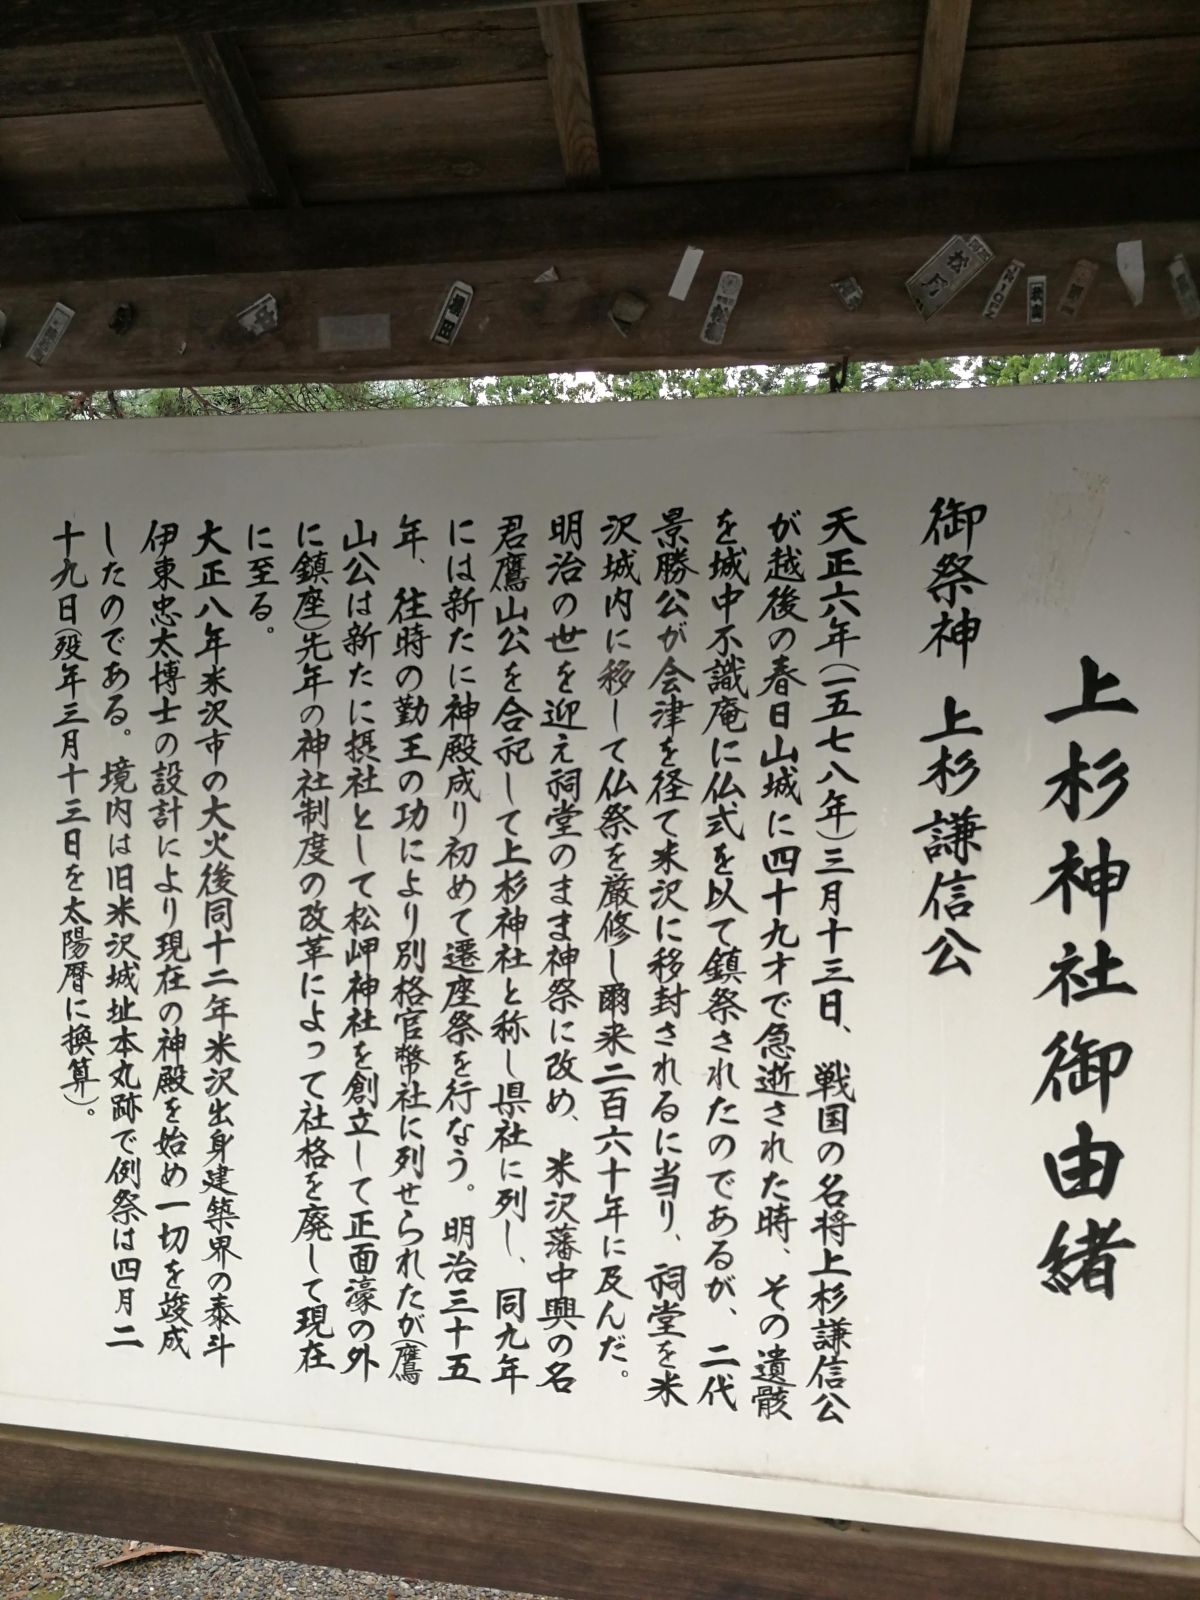 上杉神社御由緒
御祭神 上杉謙信公
天正六年(一五七八年)三月十三日、戦国の名将上杉謙信公
が越後の春日山城に四十九才で急逝された時、その遺骸
を城中不識庵に仏式を以て鎮祭されたのであるが、二代
景勝公が会津を径て米沢に移封されるに当り、祠堂を米
沢城内に移して仏祭を厳修し爾来二百六十年に及んだ。
明治の世を迎え祠堂のまま神祭に改め、米沢藩中興の名
君鷹山公を合祀して上杉神社と称し県社に列し、同九年
には新たに神殿成り初めて遷座祭を行なう。明治三十五
年、往時の勤王の功により別格官幣社に列せられたが(鷹
山公は新たに摂社として松岬神社を創立して正面濠の外
に鎮座)先年の神社制度の改革によって社格を廃して現在
に至る。
大正八年米沢市の大火後同十二年米沢出身建築界の泰斗
伊東忠太博士の設計により現在の神殿を始め一切を竣成
したのである。境内は旧米沢城址本丸跡で例祭は四月二
十九日(歿年三月十三日を太陽暦に換算)。
松
田